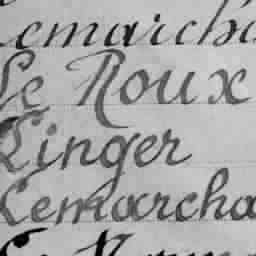 Lemarcha
Le Roux
Linger
Lemarcha